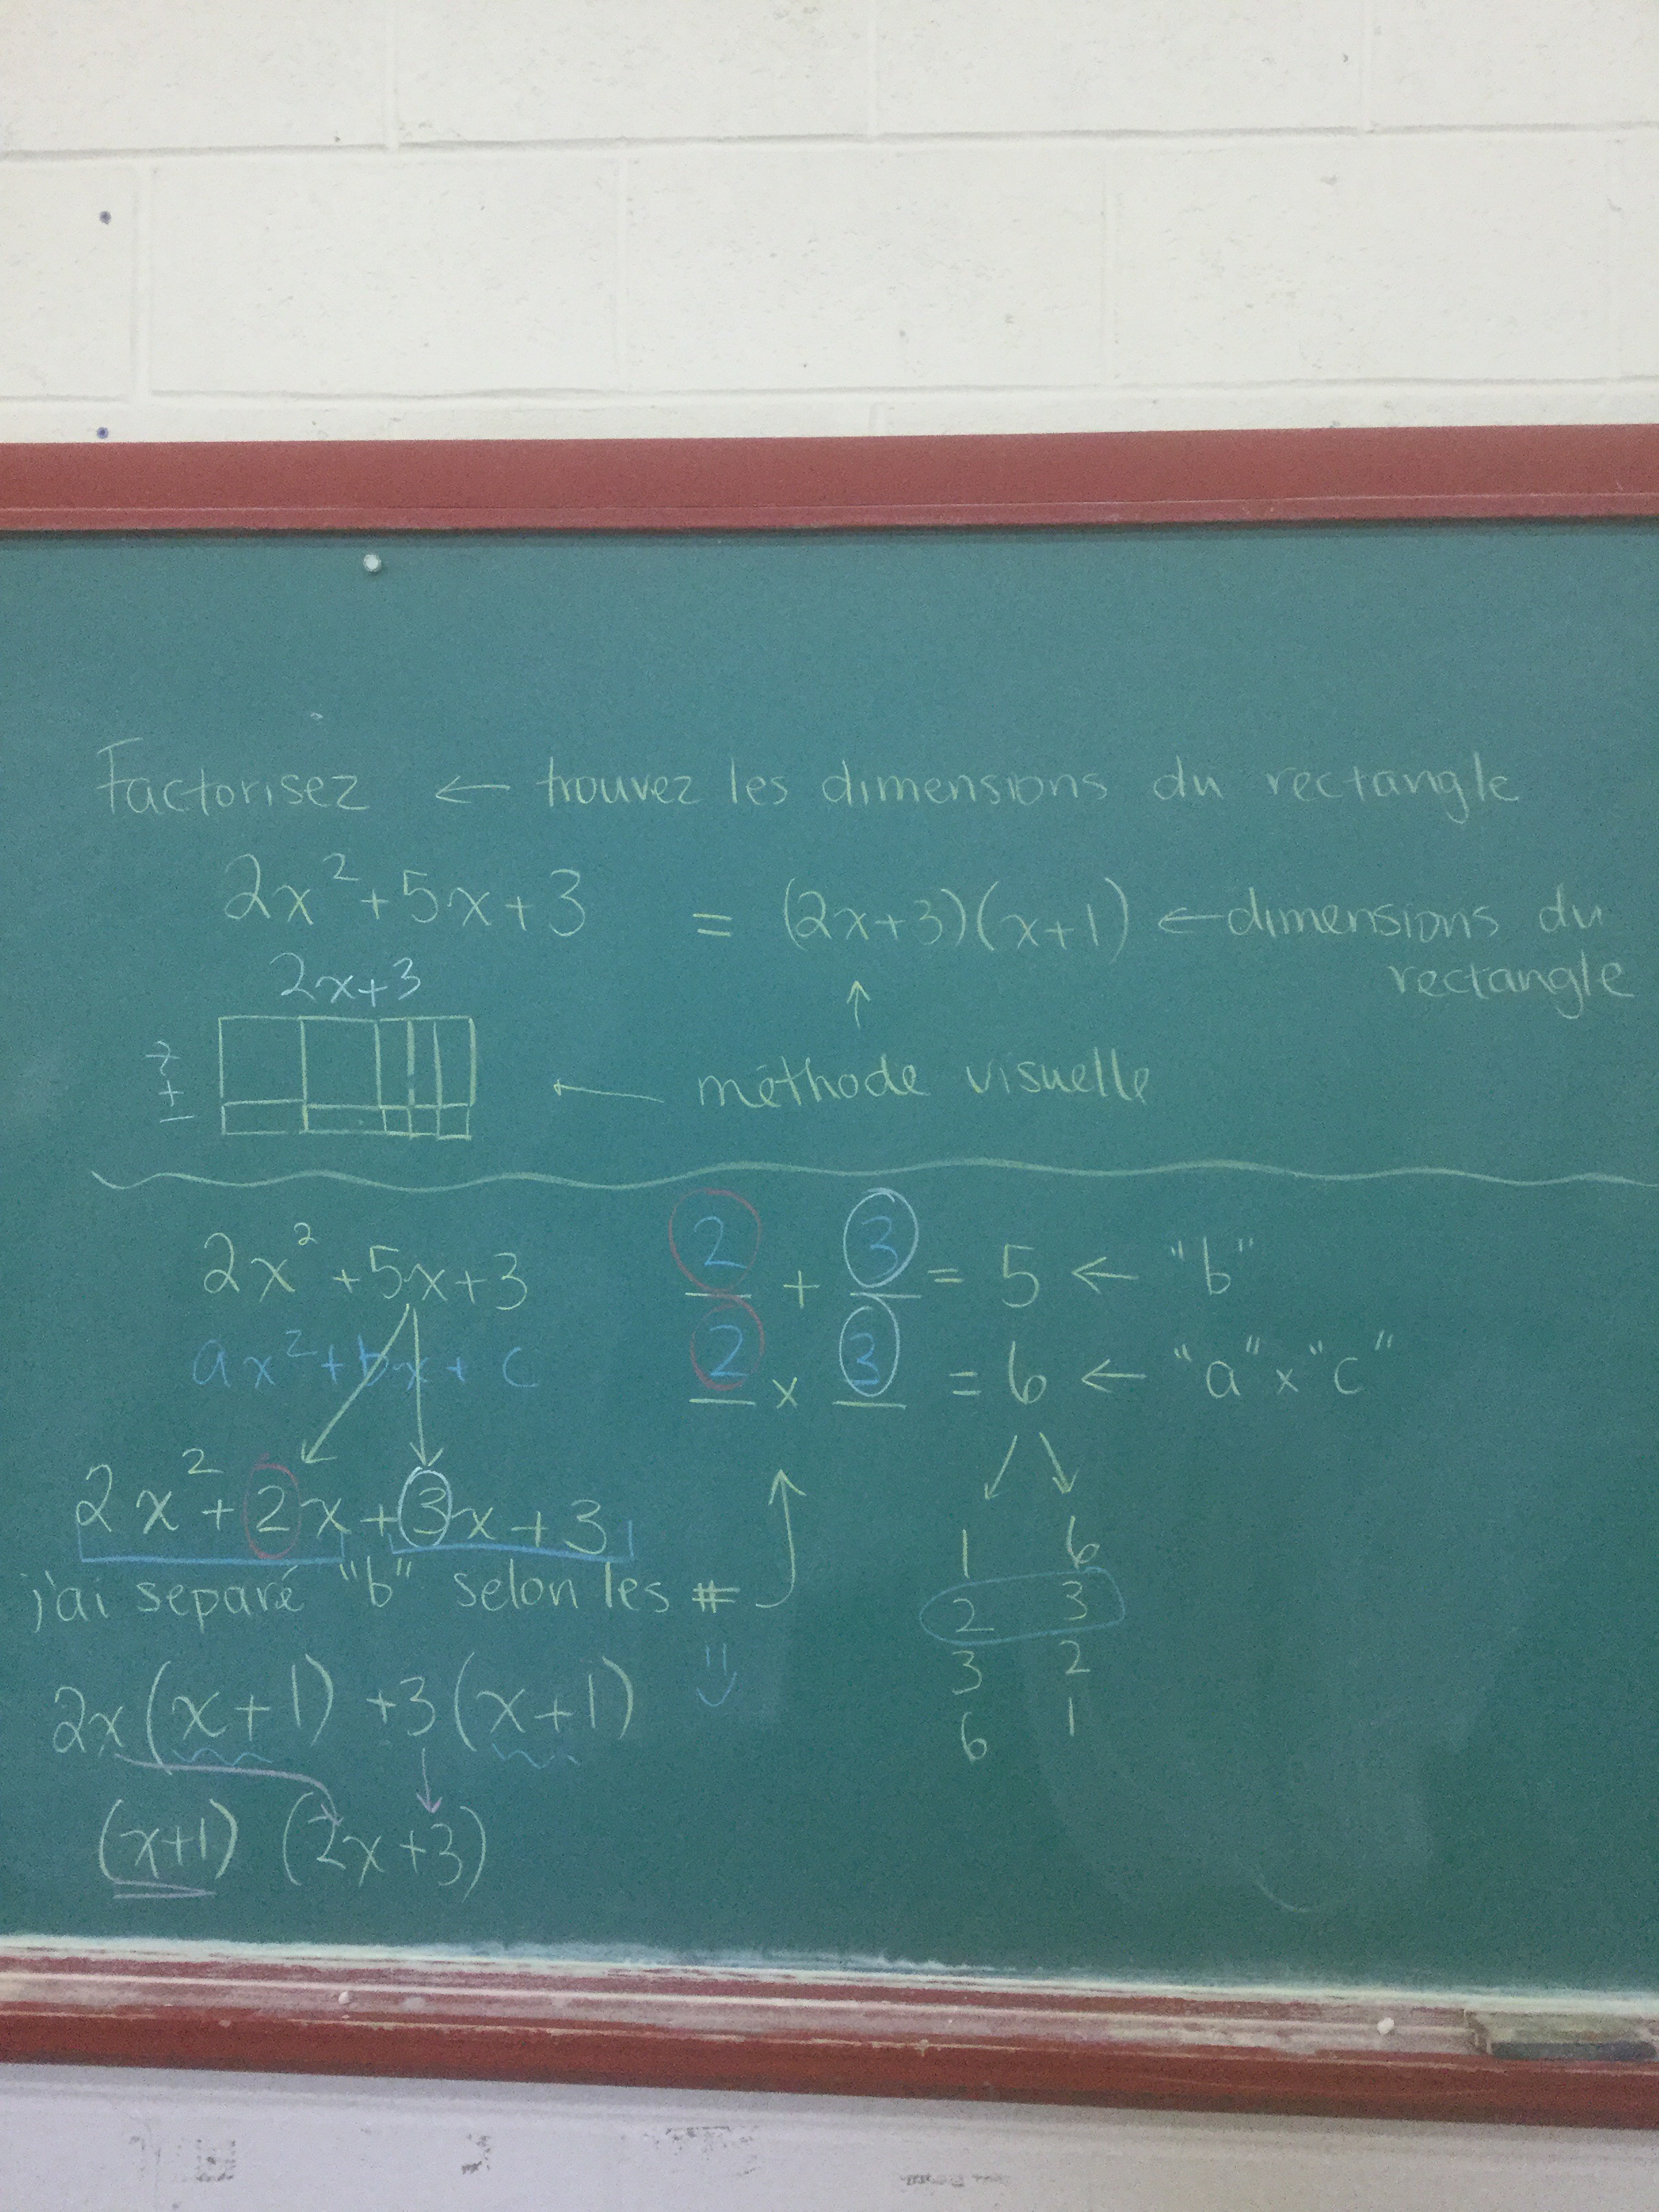 Factorisez ← trouvez les dimensions du rectangle
2x² + 5x + 3 = (2x+3)(x+1) ← dimensions du
rectangle
2x+3
x+1
↑
← méthode visuelle
2x² + 5x + 3
2 + 3 = 5 ← "b"
ax² + bx + c
2 x 3 = 6 ← "a" x "c"
2x² + 2x + 3x + 3
j'ai separé "b" selon les #
1 6
2 3
3 2
6 1
2x(x+1) +3(x+1)
(x+1) (2x+3)